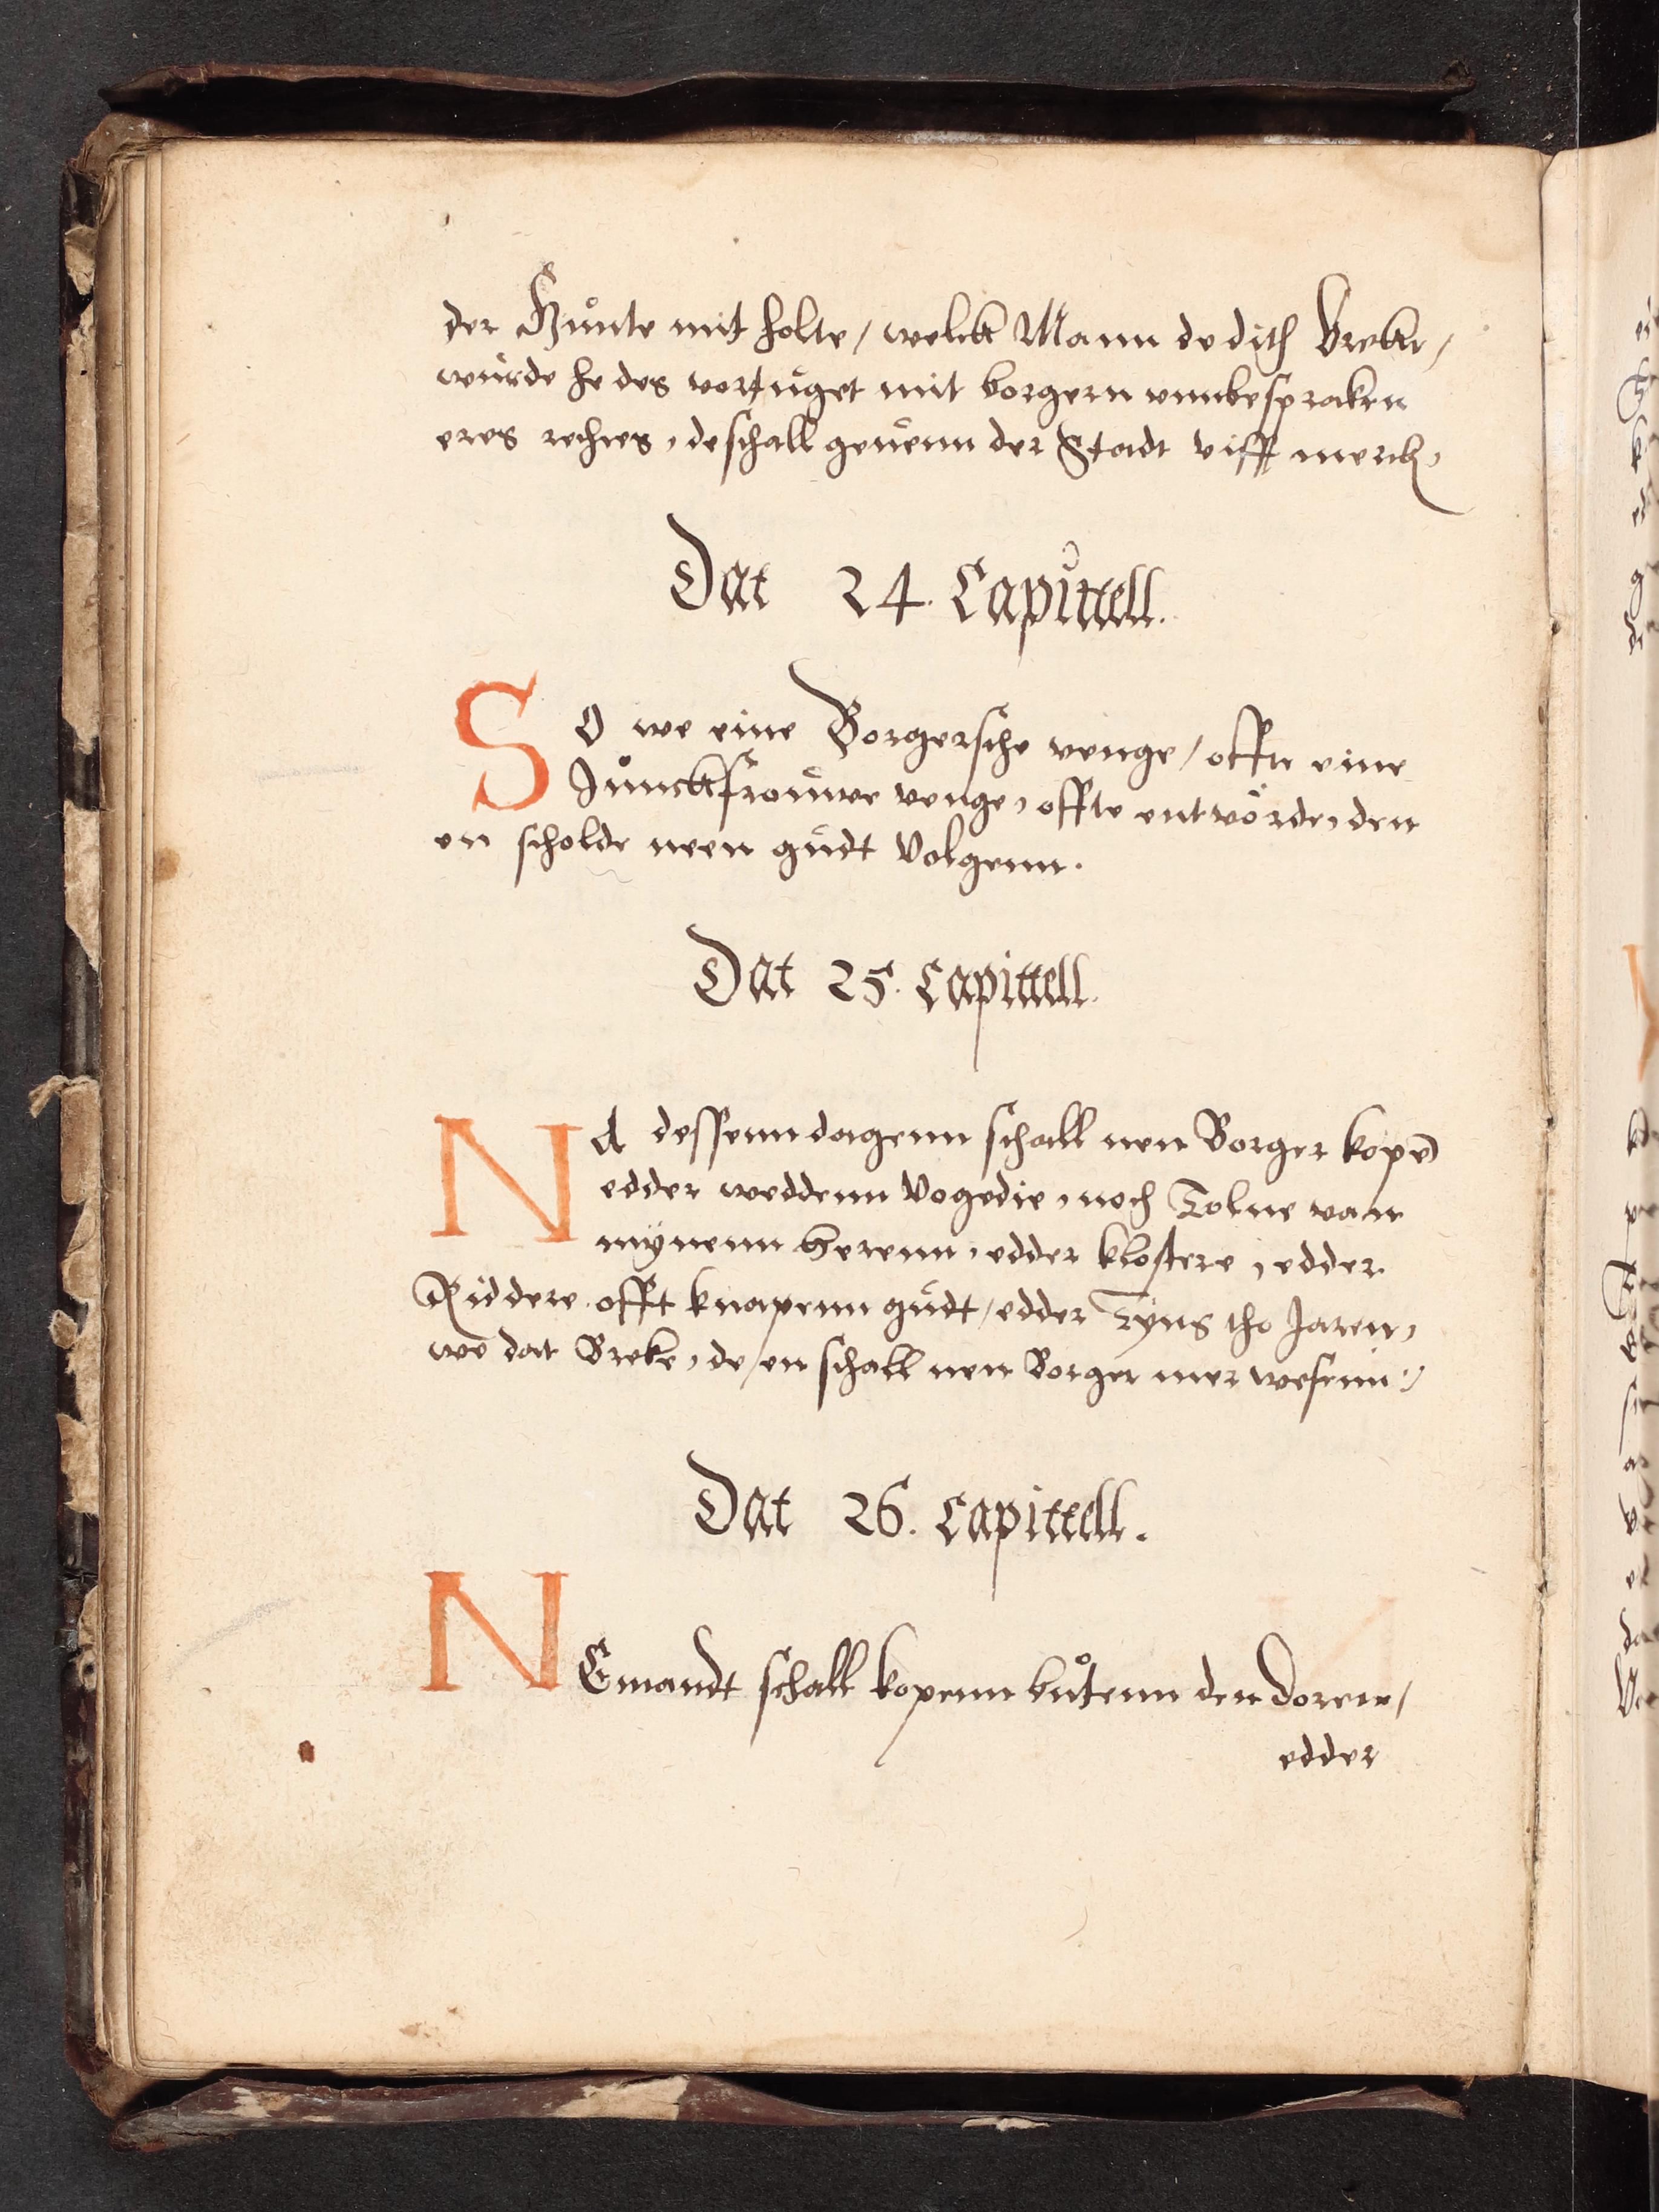 der Huͦnte mit holte / welck Mann de dith breke /
wuͦrde he des vortuͦget mit borgern vmbespraken
eres rechtes, de schall geuenn der Stadt viff merck,
Dat 24. Capittell.
SO we eine Borgersche venge / offte eine
Juͦnckfrouwe venge, offte entvörde, den
en scholde neen gudt Volgenn.
Dat 25. Capittell.
NA dessenn dagenn schall nen Borger kopē
edder weddenn Vogedie, noch Tolne van
mÿnenn Herenn, edder klostere, edder
Riddere offt knapenn gudt / edder Tyns tho Jaren,
we dat Breke, de en schall nen Borger mer wesenn:/
Dat 26. Capittell.
NEmandt schall kopenn buͦtenn den Doren /
edder